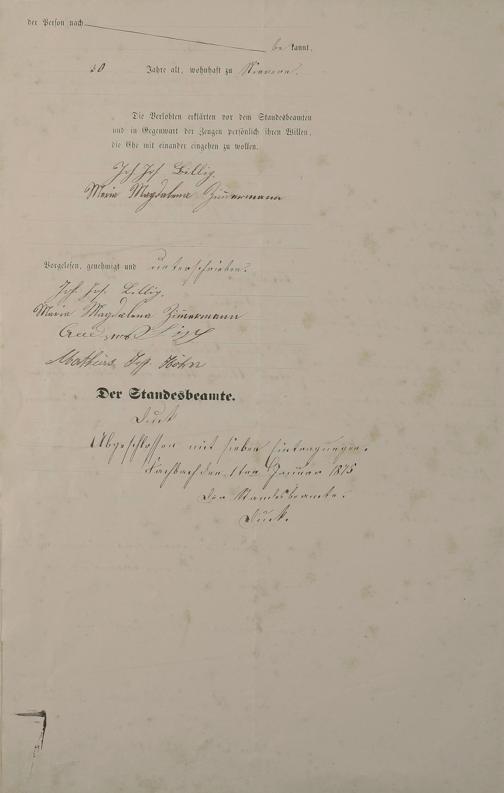 der Person nach
be kannt,
50 Jahre alt, wohnhaft zu
Die Verlobten erklärten vor dem Standesbeamten
und in Gegenwart der Zeugen persönlich ihren Willen,
die Ehe mit einander eingehen zu wollen.
Joh Jos Billig.
Maria Magdalena Zimmermann
Vorgelesen, genehmigt und unterschrieben:
Joh. Jos. Billig.
Maria Magdalena Zimmermann
Mathias Jos. Höhn
Der Standesbeamte.
Abgeschlossen mit sieben Eintragungen.
den 1ten Januar 1875
Der Standesbeamte: